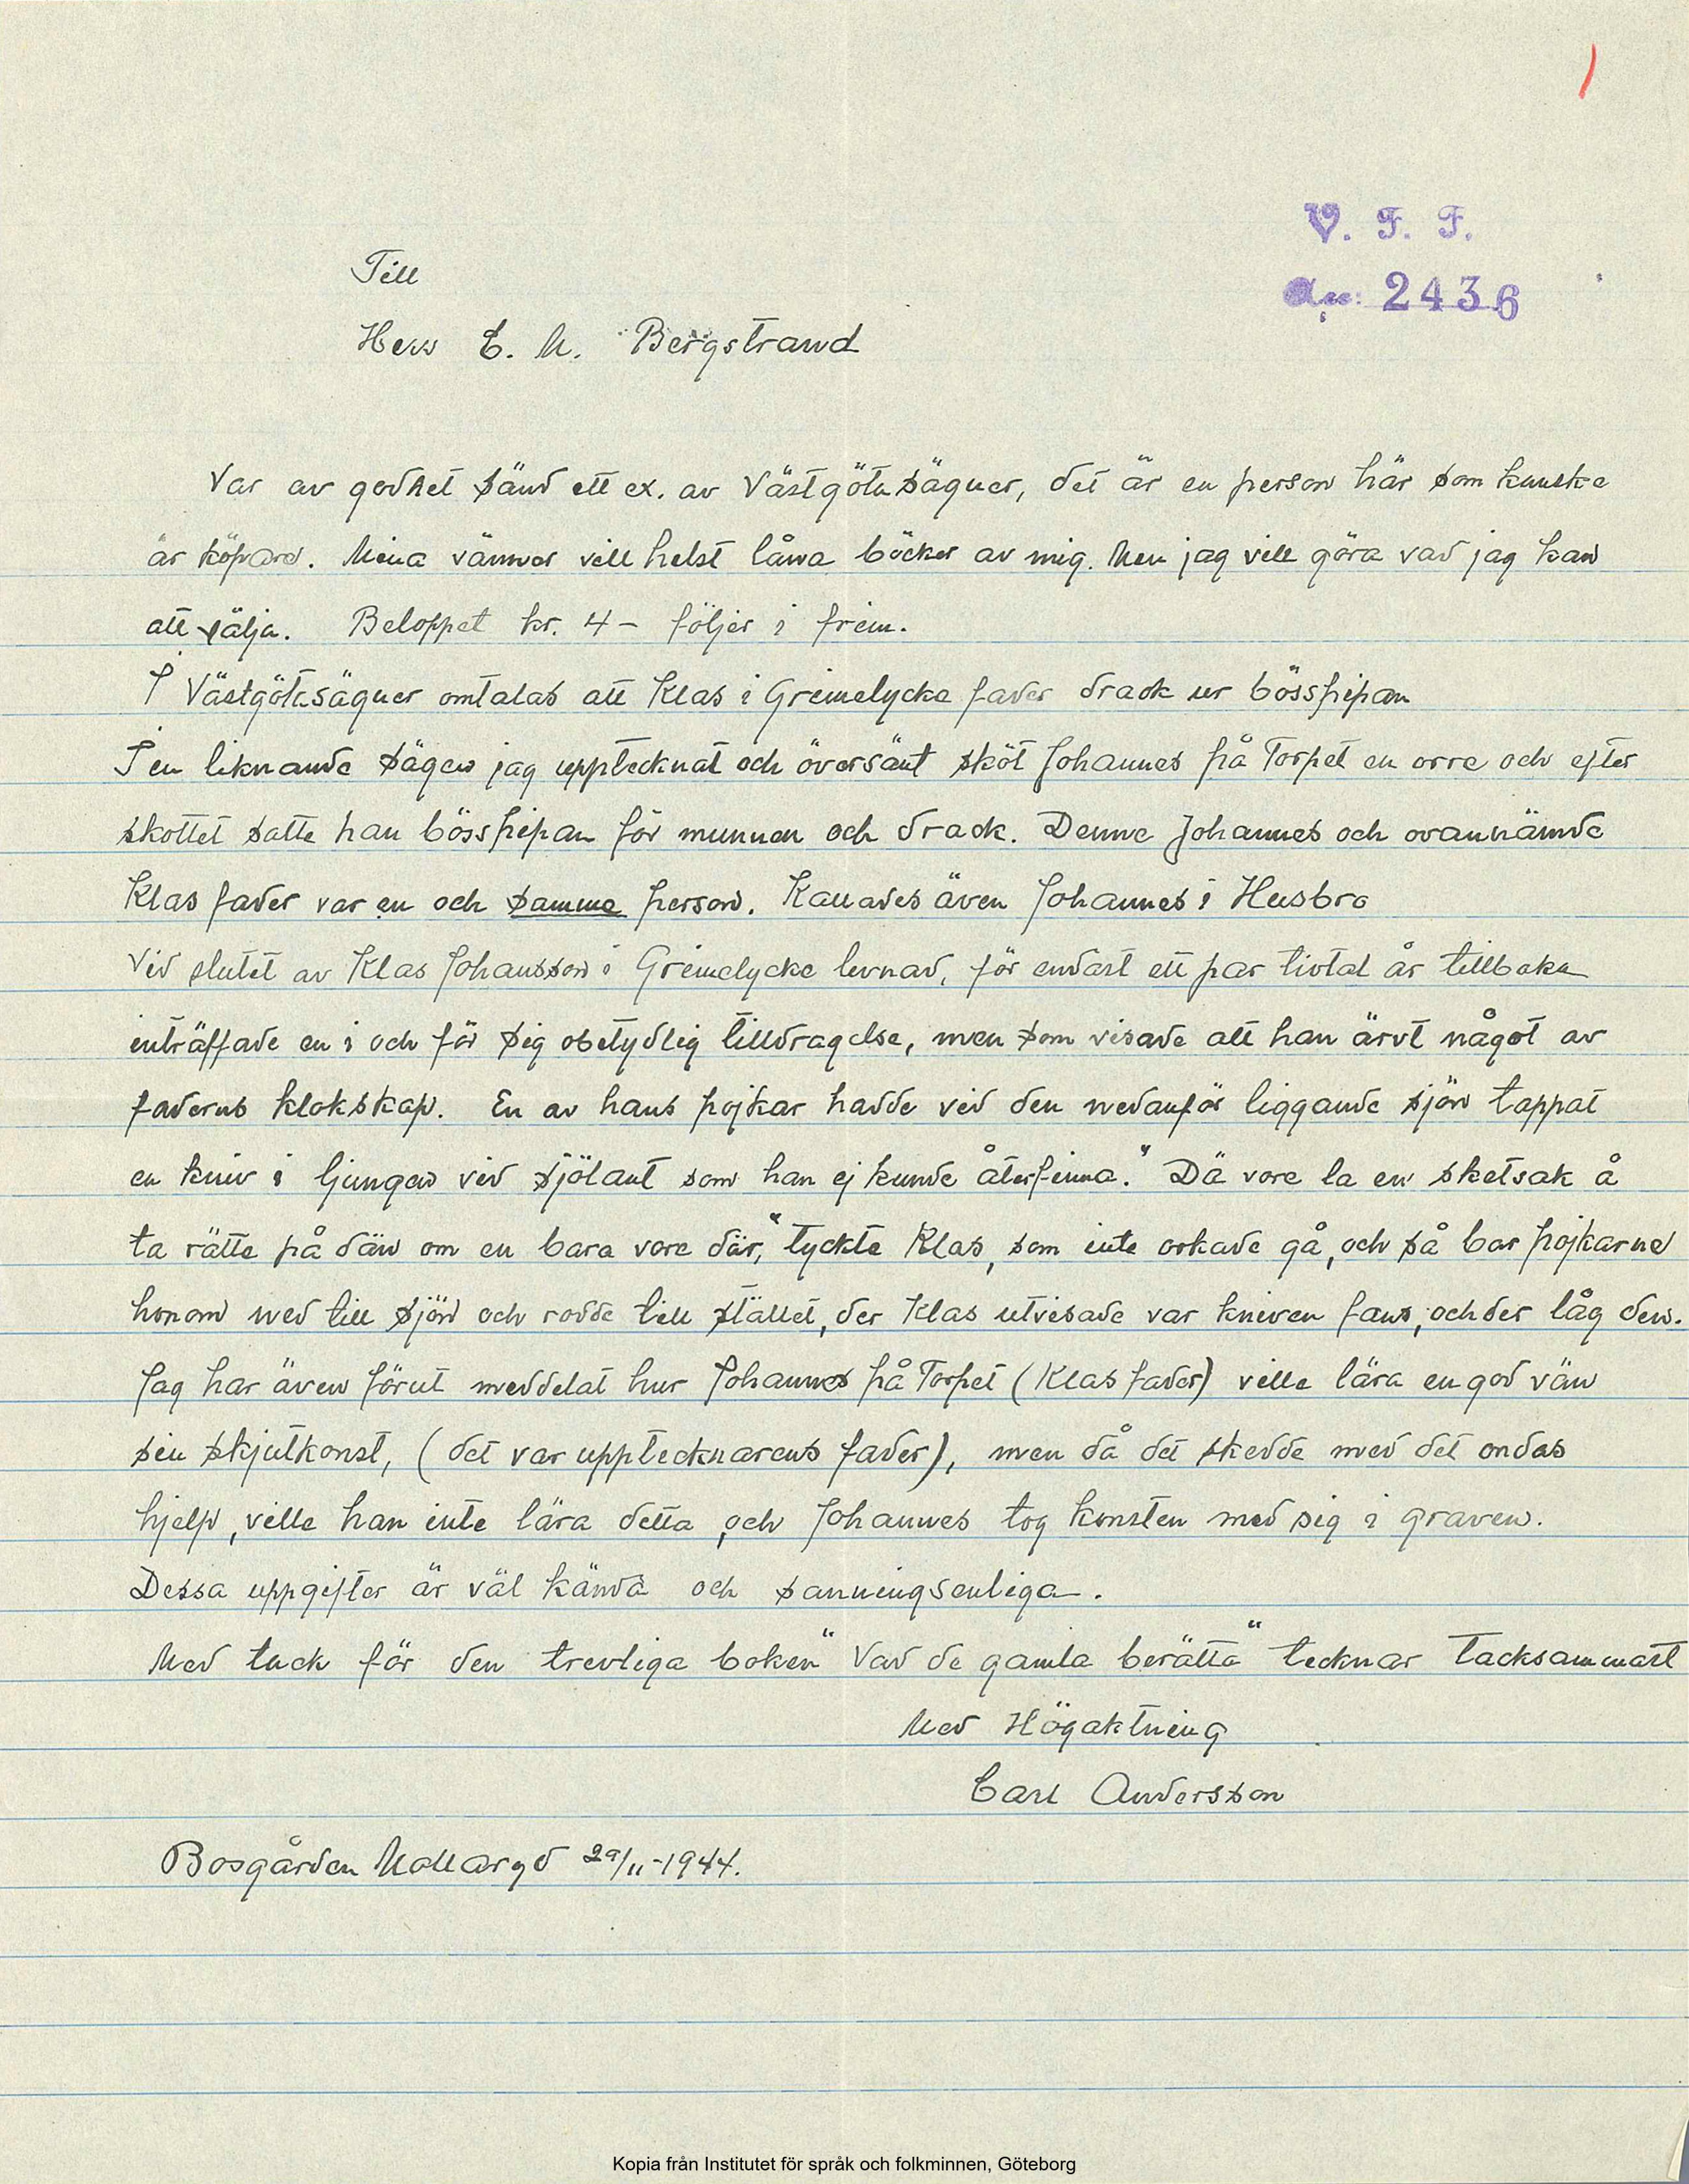 V. F. F.
Acc: 2436
Till
Herr C. M. Bergstrand
Var av godhet sänd ett ex. av Västgötasägner, det är en person här som kanske
är köpare. Mina vänner vill helst låna böcker av mig. Men jag vill göra vad jag kan
att sälja. Beloppet kr. 4 – följer i frim.
I Västgötasägner omtalas att Klas i Grimelycke fader drack ur bösspipan
I en liknande sägen jag upptecknat och översänt sköt Johannes på Torpet en orre och efter
skottet satte han bösspipan för munnen och drack. Denne Johannes och ovannämde
Klas fader var en och samme person. Kallades även Johannes i Husbro
Vid slutet av Klas Johansson i Grimelycke levnad, för endast ett par tiotal år tillbaka
inträffade en i och för sig obetydlig tilldragelse, men som visade att han ärvt något av
faderns klokskap. En av hans pojkar hadde vid den nedanför liggande sjön tappat
en kniv i ljungen vid sjölant som han ej kunde återfinna. "Dä vore la en sketsak å
ta rätte på dän om en bara vore där," tyckte Klas, som inte orkade gå, och så bar pojkarne
honom ned till sjön och rodde till stället, der Klas utvisade var kniven fans, och der låg den.
Jag har även förut meddelat hur Johannes på Torpet (Klas fader) ville lära en god vän
sin skjutkonst, (det var upptecknarens fader), men då det skedde med det ondas
hjelp, ville han inte lära detta, och Johannes tog konsten med sig i graven.
Dessa uppgifter är väl kända och sanningsenliga.
Med tack för den trevliga boken "Vad de gamla berätta" tecknar tacksammast
Med Högaktning
Carl Andersson
Bosgården Mollaryd 29/11-1944.
Kopia från Institutet för språk och folkminnen, Göteborg